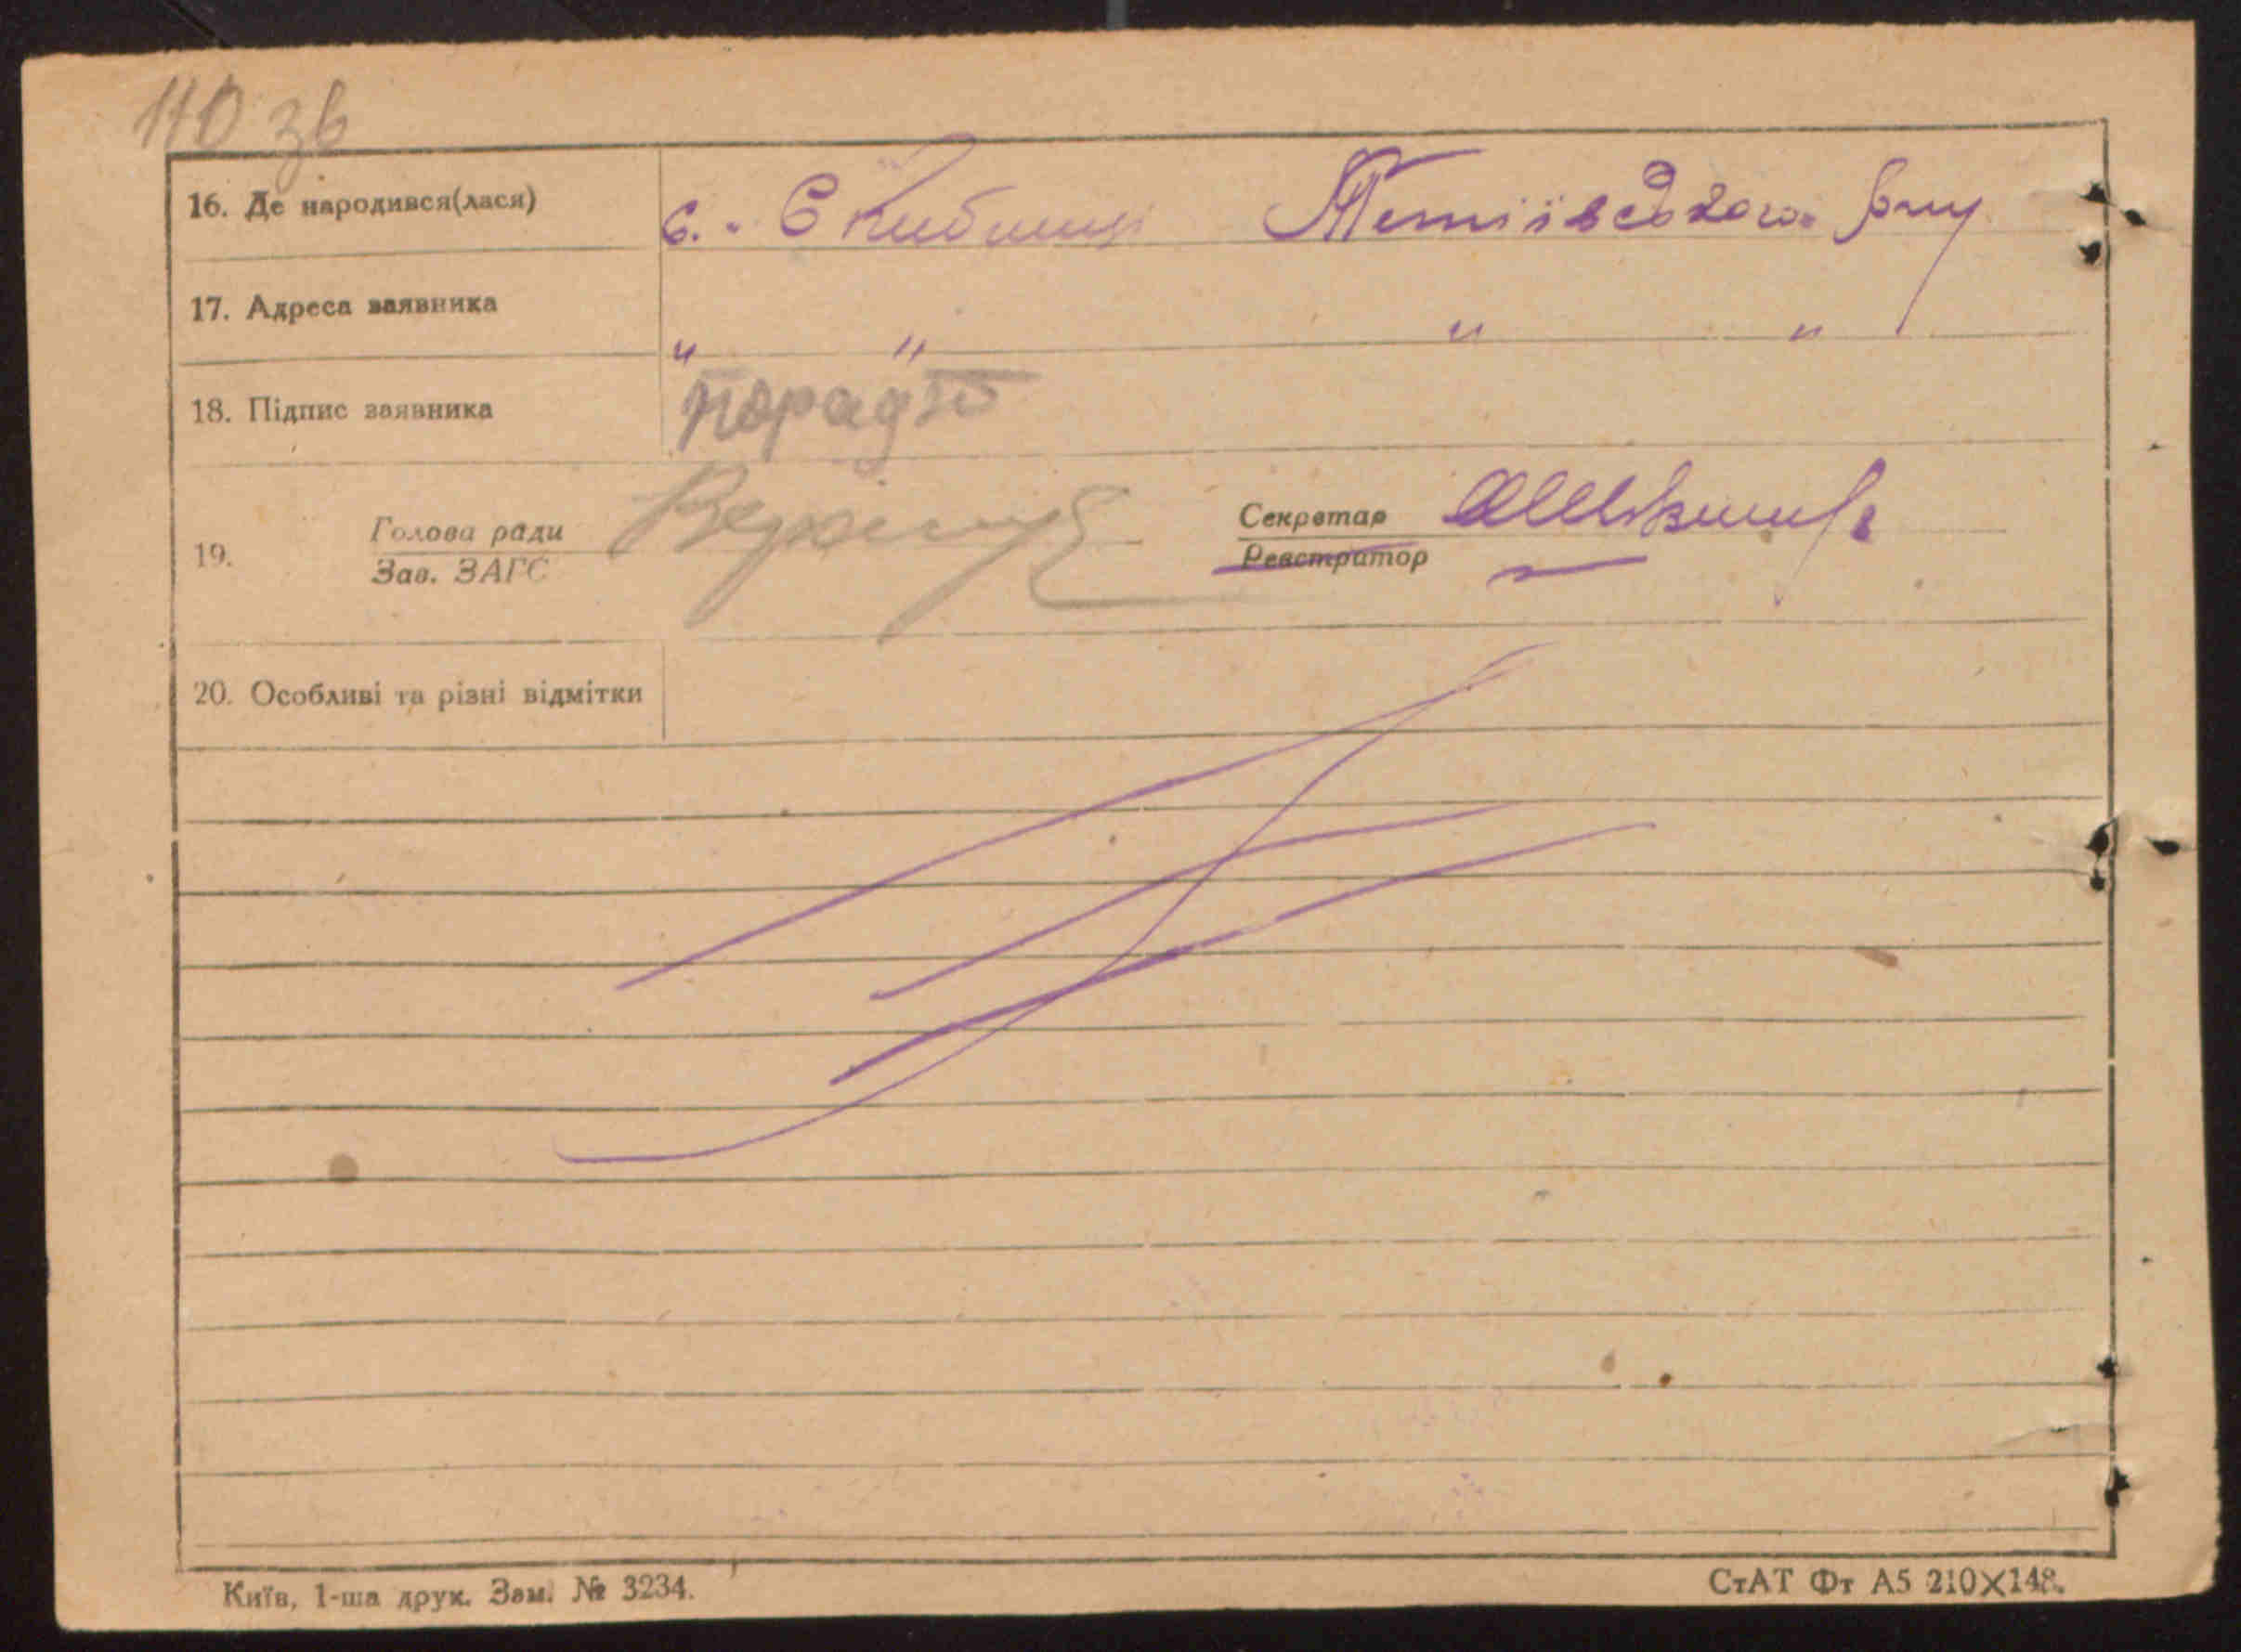 110 зв
16. Де народився(лася) с. Скибинці Тетіївського р-ну
17. Адреса заявника " " " "
18. Підпис заявника
19. Голова ради Секретар
Зав. ЗАГС Реєстратор
20. Особливі та різні відмітки
Київ, 1-ша друк. Зам. № 3234.
СтАТ Фт А5 210×148.